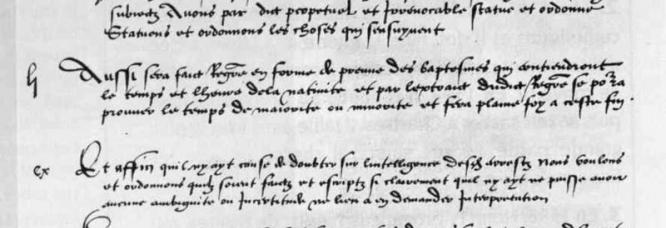 subiectz Avons par dict perpetuel et irrevocable statue et ordonne
Statuons et ordonnons les choses qui sensuyvent
lj Aussi sera faict Regre en forme de preuve des baptesmes qui contiendront
le temps et lheure dela nativite et par lextraict dudict Regre se pora
prouver le temps de maiorite ou minorite et fera plaine foy a ceste fin.
cx Et affin quil ny ayt cause de doubter sur lintelligence desd arrestz Nous voulons
et ordonnons quilz soient faictz et escriptz si clairement quil ny ayt ne puisse avoir
aucune ambiguite ou Incertitude ne lieu a en demander Interpretation